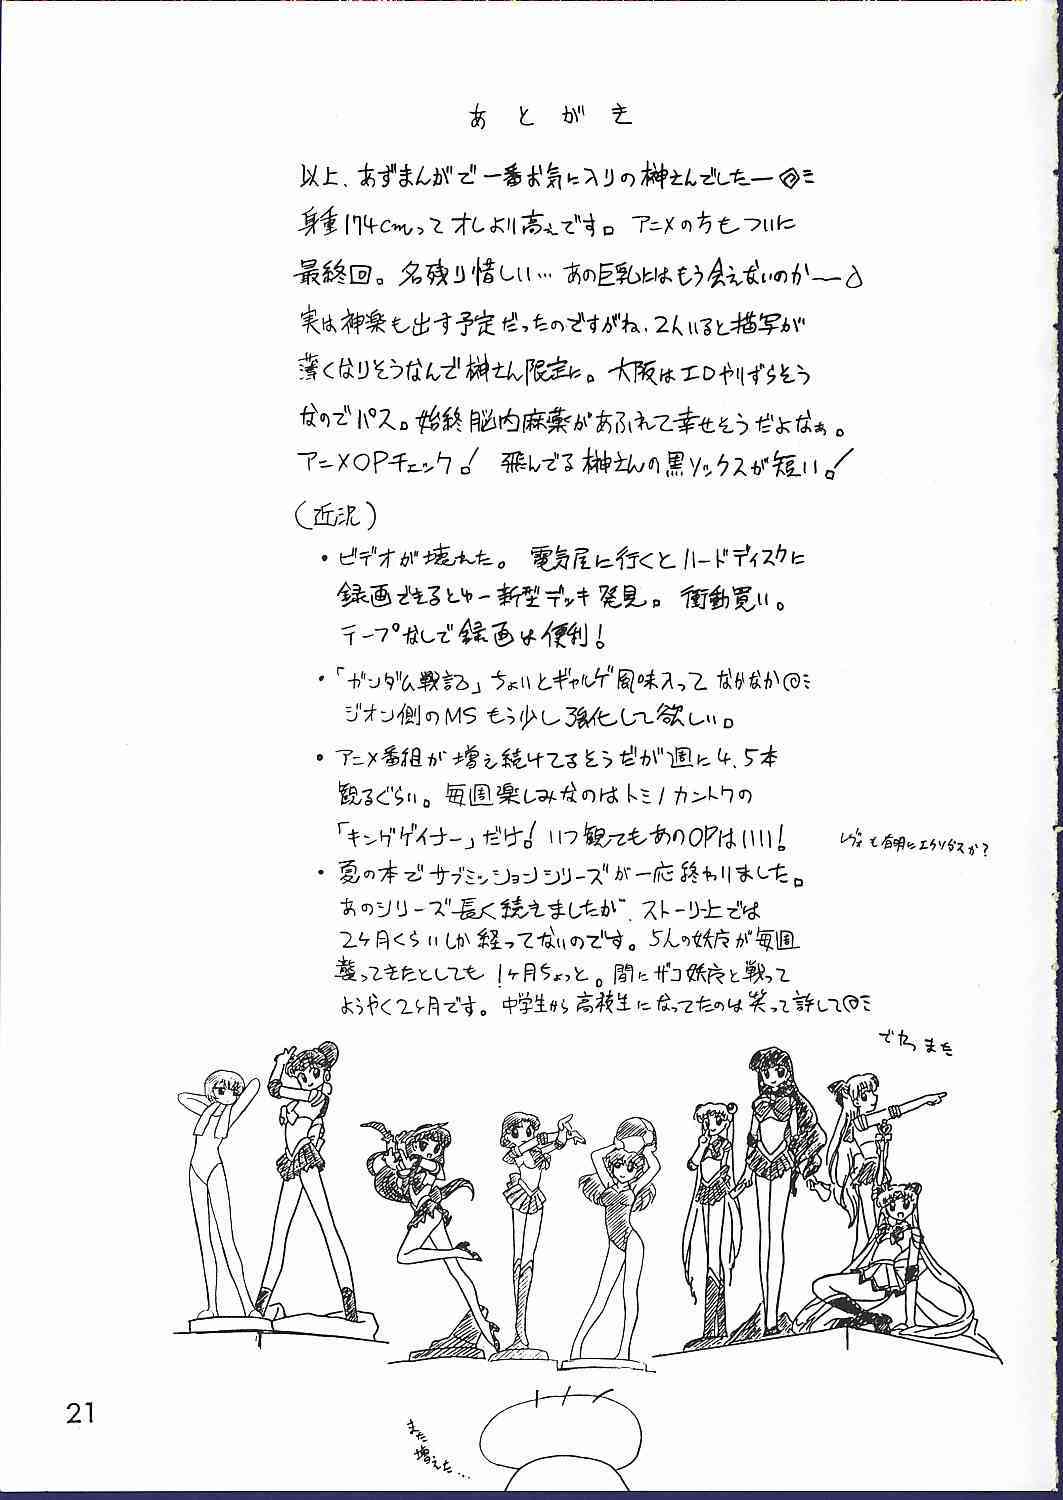 あとがき
以上、あずまんがで一番お気に入りの榊さんでしたー
身重174cmってオレより高えです。アニメの方もついに
最終回。名残り惜しい…あの巨乳にはもう会えないのか〜
実は神楽も出す予定だったのですがね、2人いると描写が
薄くなりそうなんで榊さん限定に。大阪はエロやりずらそう
なのでパス。始終脳内麻薬があふれて幸せそうだよなぁ。
アニメOPチェック！飛んでる榊さんの黒ソックスが短い！
（近況）
・ビデオが壊れた。電気屋に行くとハードディスクに
録画できるとゆー新型デッキ発見。衝動買い。
テープなしで録画は便利！
・「ガンダム戦記」ちょいとギャルゲ風味入ってなかなか@ミ
ジオン側のMSもう少し強化して欲しい。
・アニメ番組が増え続けてるそうだが週に4、5本
観るぐらい。毎週楽しみなのはトミノカントクの
「キングゲイナー」だけ！いつ観てもあのOPはいい！
も有明にエクソダスか？
・夏の本でサブミッションシリーズが一応終わりました。
あのシリーズ長く続えましたが、ストーリー上では
2ヶ月くらいしか経ってないのです。5人の妖魔が毎週
襲ってきたとしても1ヶ月ちょっと。間にザコ妖魔と戦って
ようやく2ヶ月です。中学生から高校生になってたのは笑って許して@ミ
でわっまた
また
増えた…
21